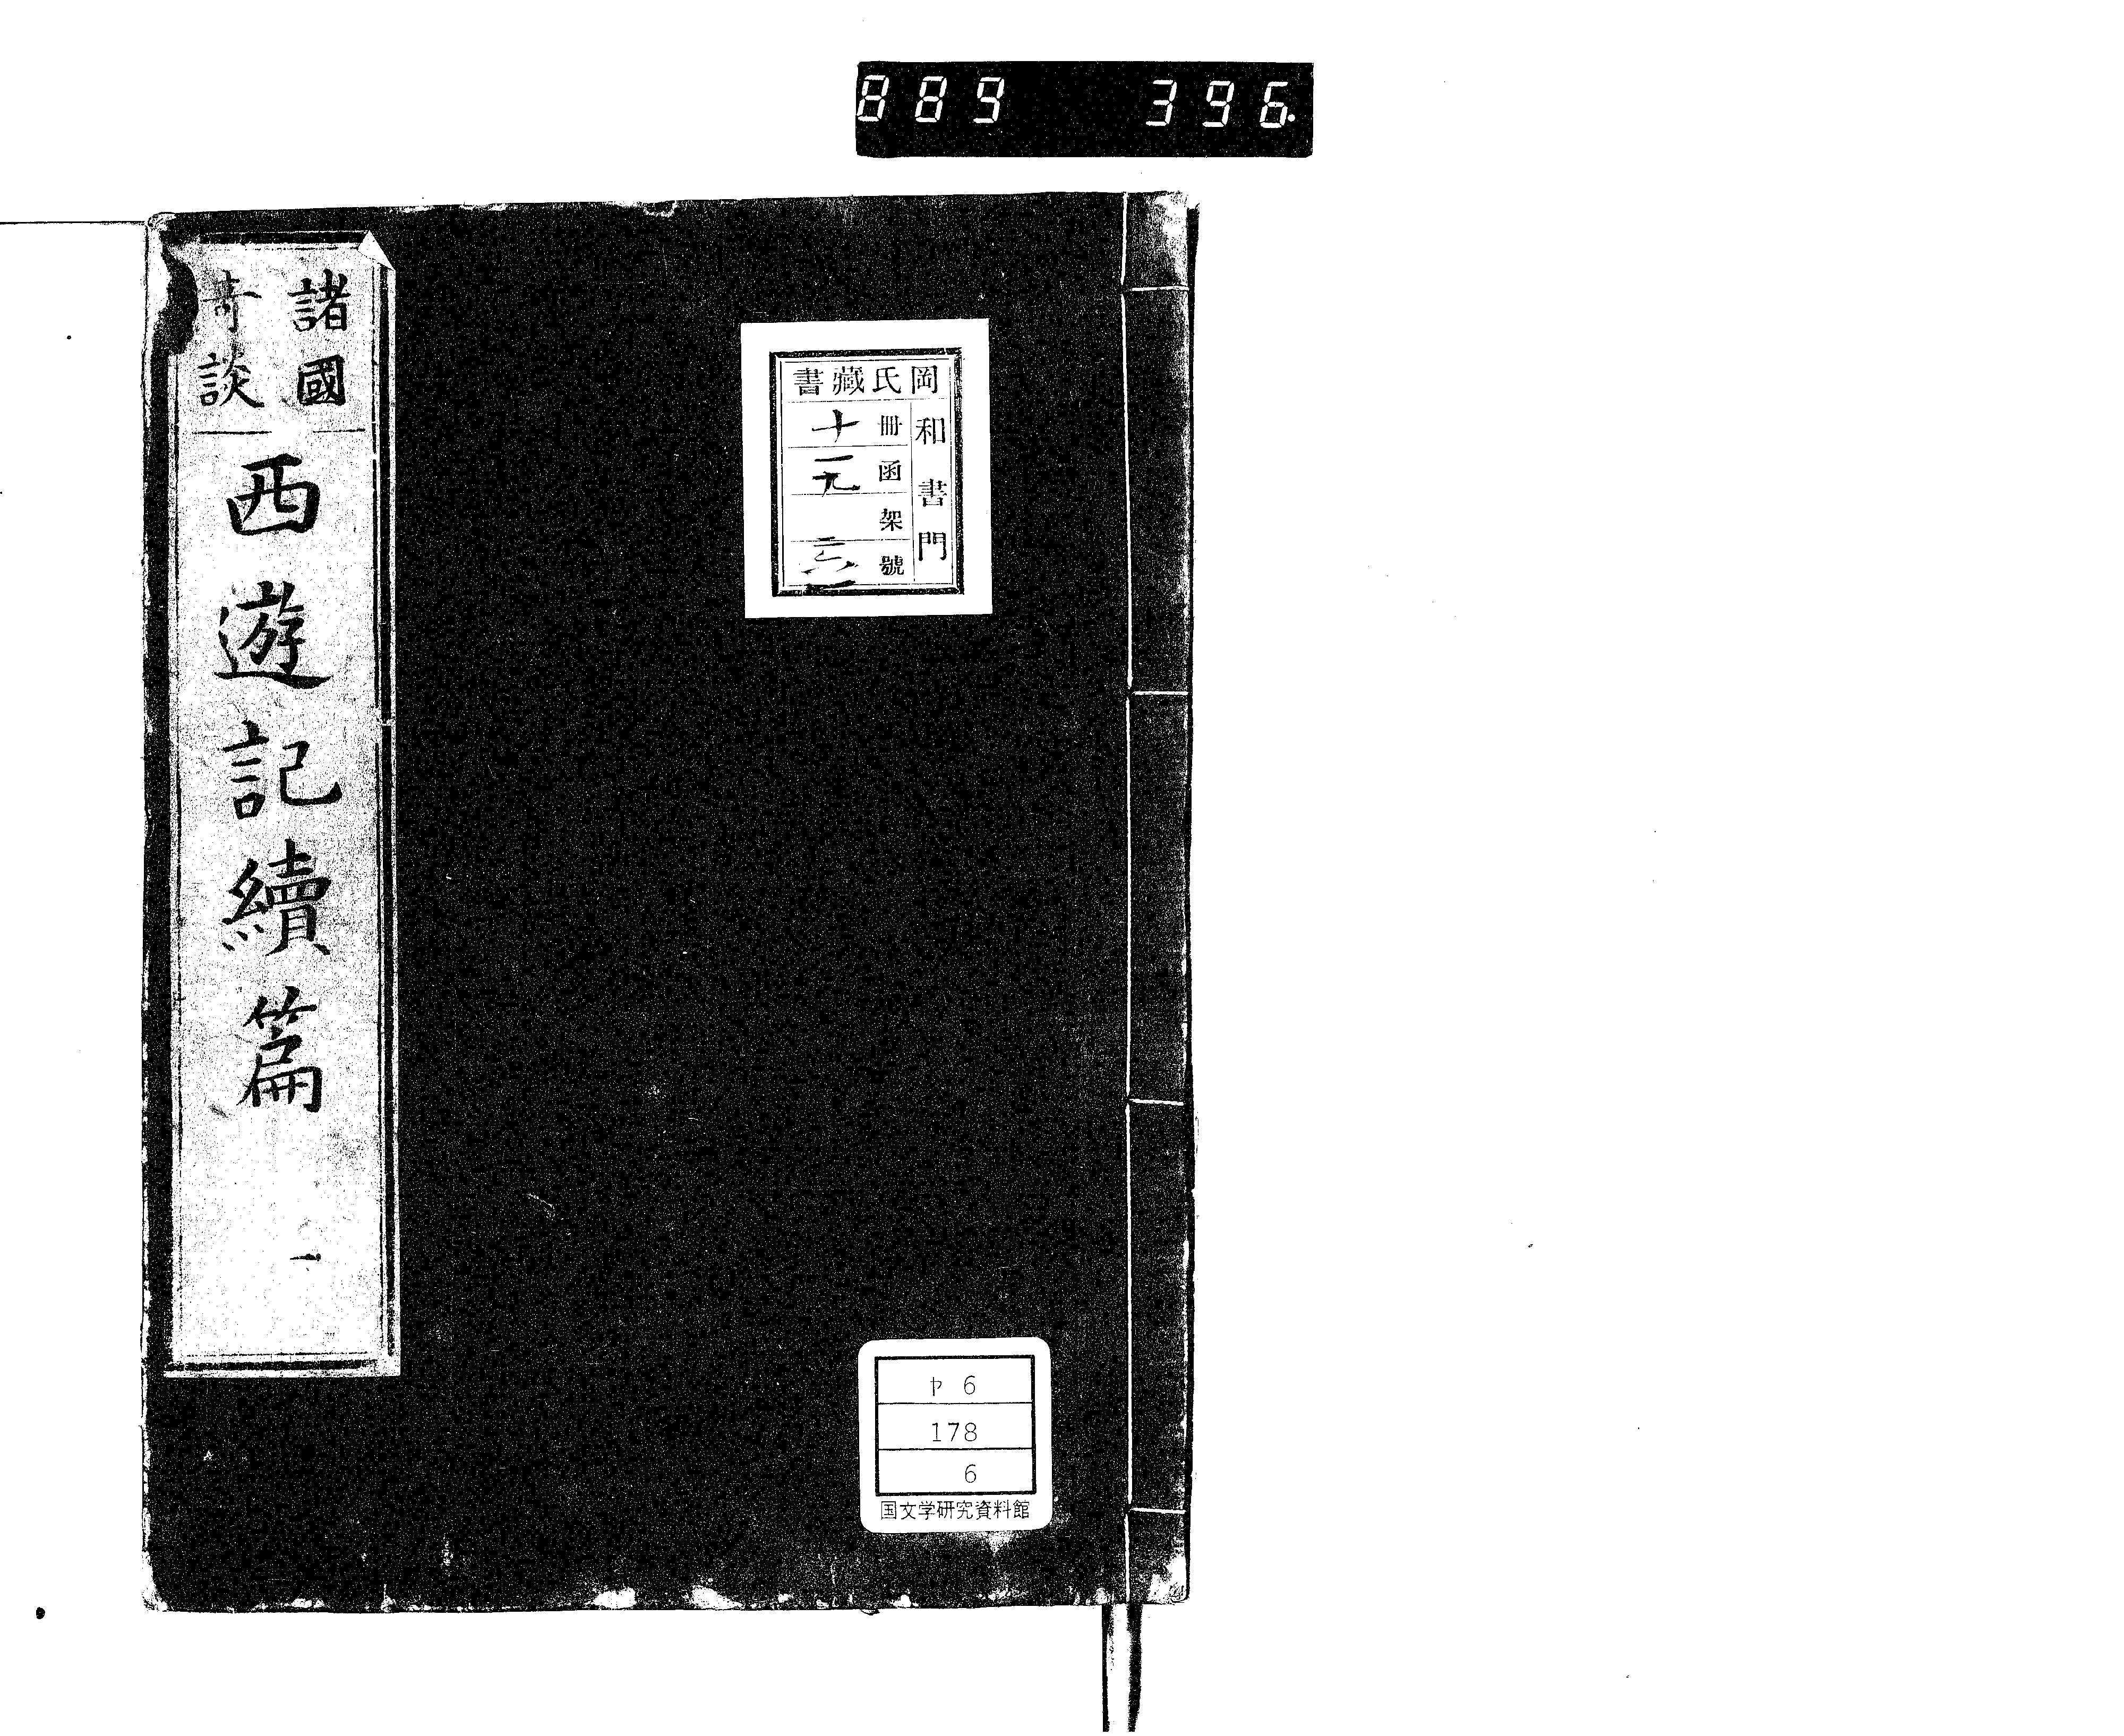 889 396.
諸國
奇談
西遊記續篇
一
岡氏藏書
和書門
冊 十
函
架
號
ヤ 6
178
6
国文学研究資料館